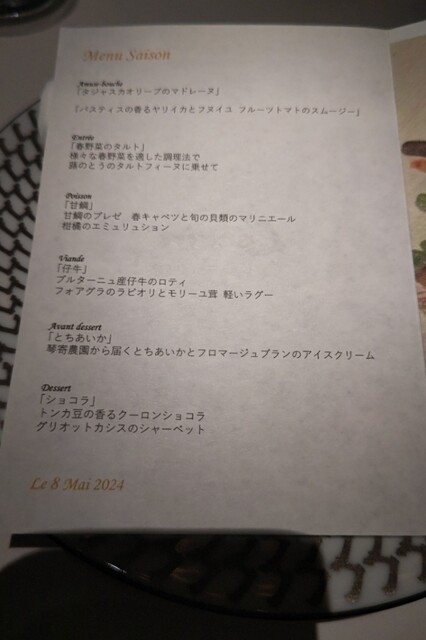 Menu Saison
Amuse-bouche
「タジャスカオリーブのマドレーヌ」
「パスティスの香るヤリイカとフヌイユ フルーツトマトのスムージー」
Entrée
「春野菜のタルト」
様々な春野菜を適した調理法で
蕗のとうのタルトフィーヌに乗せて
Poisson
「甘鯛」
甘鯛のブレゼ 春キャベツと旬の貝類のマリニエール
柑橘のエミュリュション
Viande
「仔牛」
ブルターニュ産仔牛のロティ
フォアグラのラビオリとモリーユ茸 軽いラグー
Avant dessert
「とちあいか」
琴寄農園から届くとちあいかとフロマージュブランのアイスクリーム
Dessert
「ショコラ」
トンカ豆の香るクーロンショコラ
グリオットカシスのシャーベット
Le 8 Mai 2024